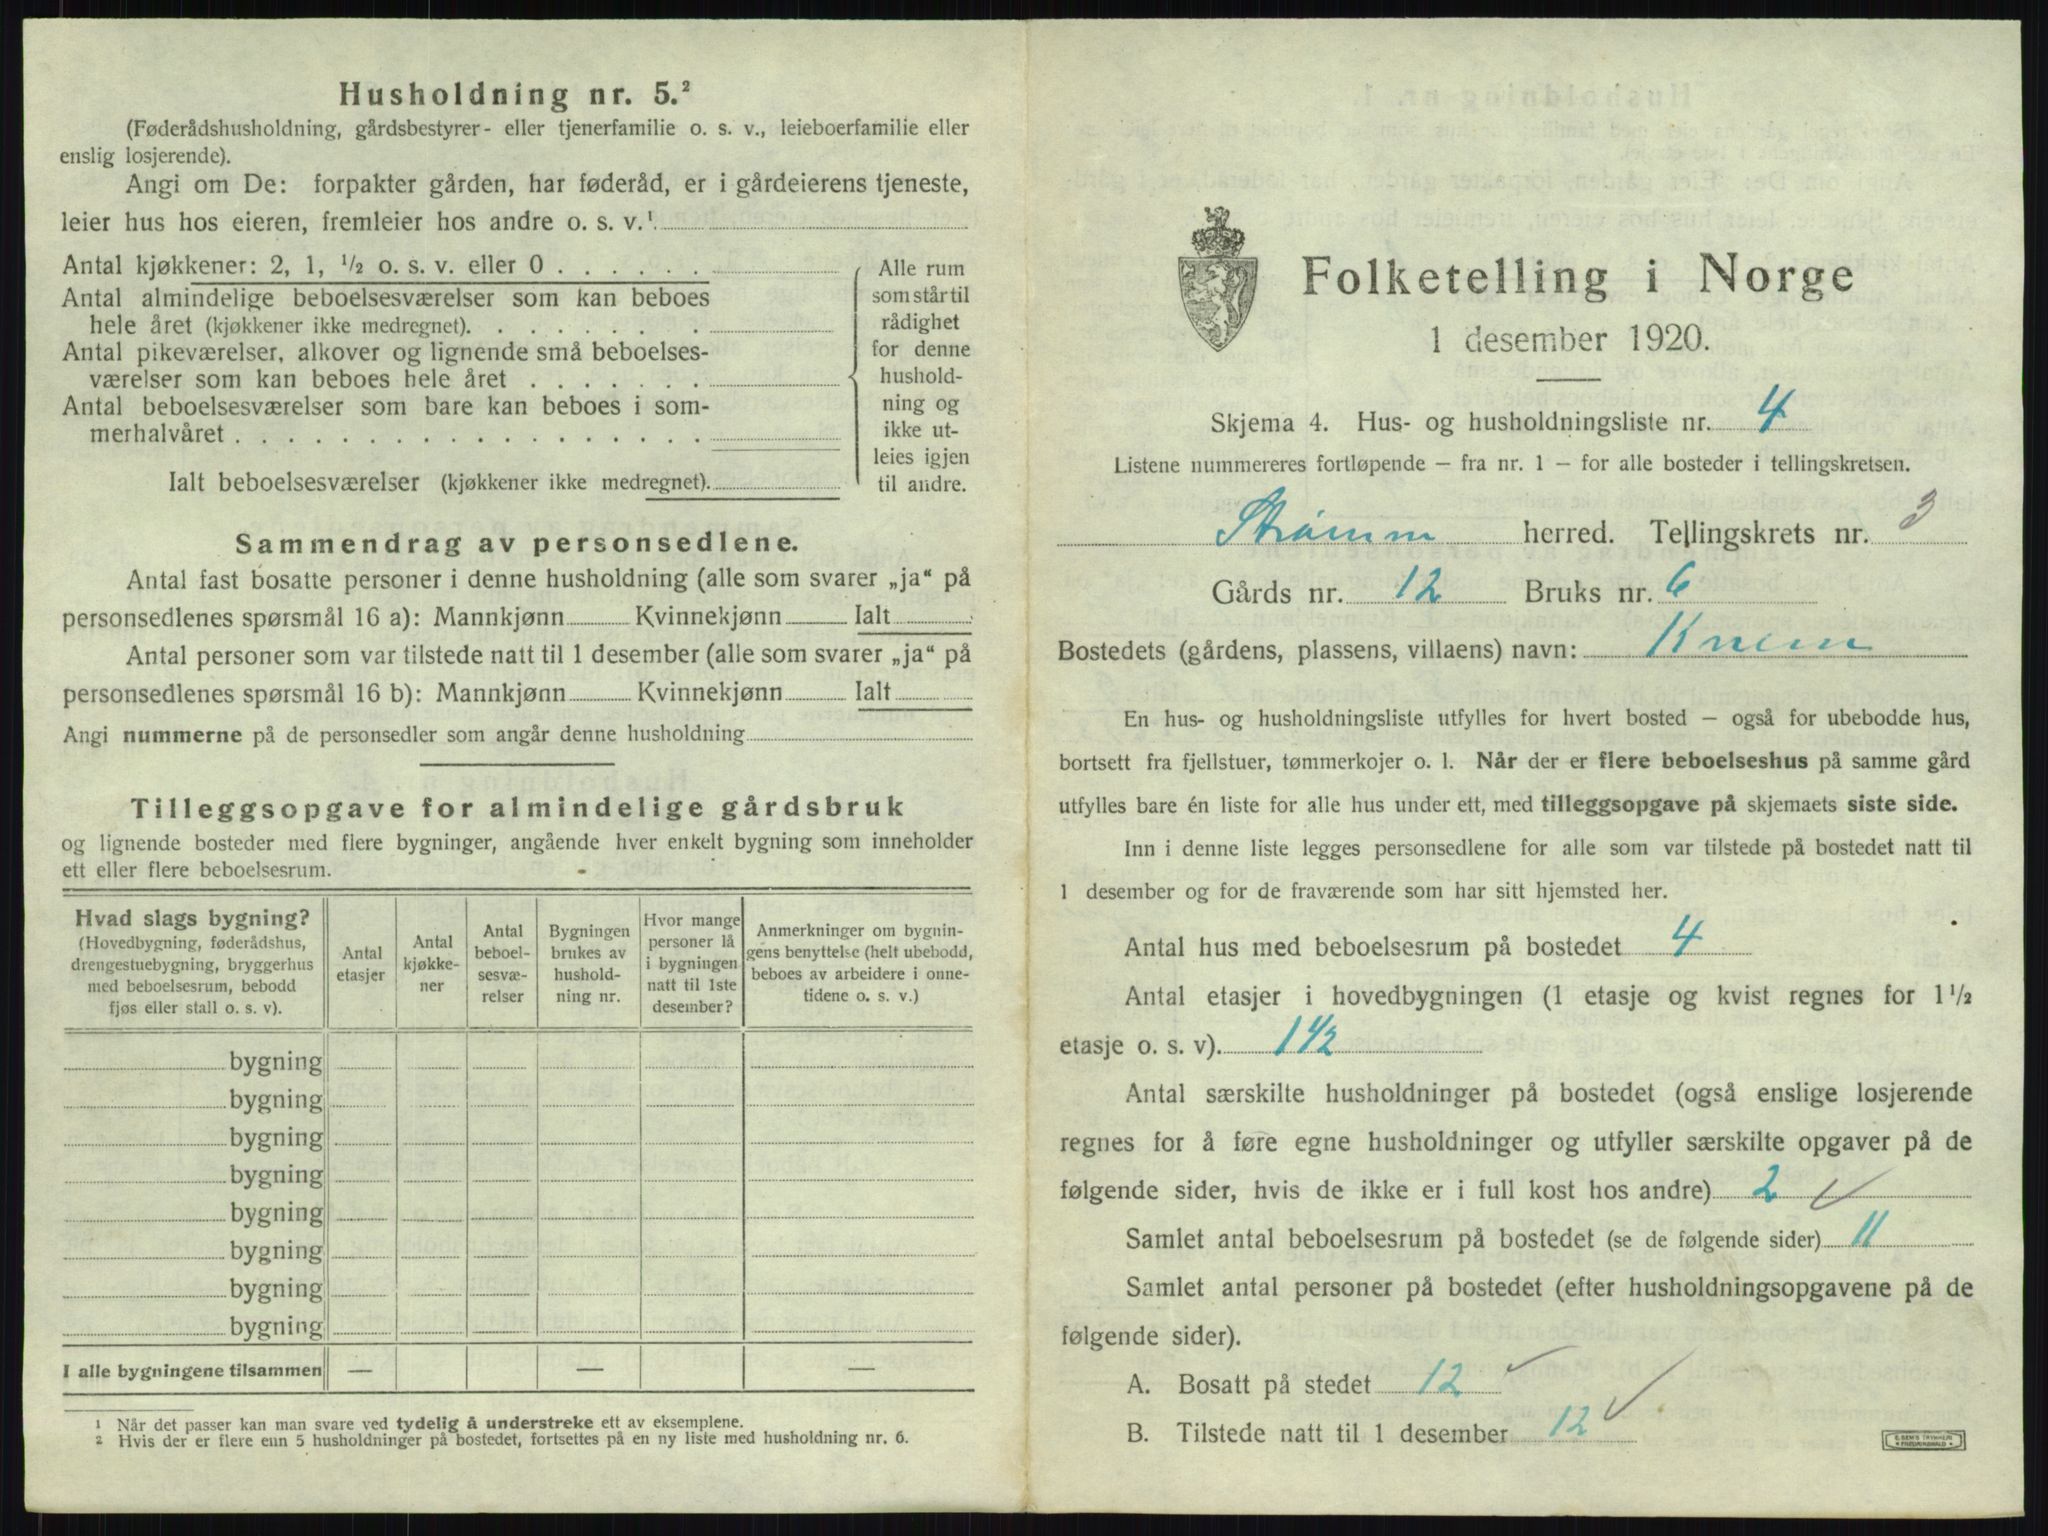 Husholdning nr. 5.²
(Føderådshusholdning, gårdsbestyrer- eller tjenerfamilie o. s. v., leieboerfamilie eller
enslig losjerende).
Angi om De: forpakter gården, har føderåd, er i gårdeierens tjeneste,
leier hus hos eieren, fremleier hos andre o. s. v.¹
Antal kjøkkener: 2, 1, ½ o. s. v. eller 0 . . . . . .
Antal almindelige beboelsesværelser som kan beboes
hele året (kjøkkener ikke medregnet). . . . . . . .
Antal pikeværelser, alkover og lignende små beboelses-
værelser som kan beboes hele året . . . . . . .
Antal beboelsesværelser som bare kan beboes i som-
merhalvåret . . . . . . . . . . . . . . . . . .
Ialt beboelsesværelser (kjøkkener ikke medregnet).
Alle rum
som står til
rådighet
for denne
hushold-
ning og
ikke ut-
leies igjen
til andre.
Sammendrag av personsedlene.
Antal fast bosatte personer i denne husholdning (alle som svarer „ja“ på
personsedlenes spørsmål 16 a): Mannkjønn Kvinnekjønn Ialt
Antal personer som var tilstede natt til 1 desember (alle som svarer „ja“ på
personsedlenes spørsmål 16 b): Mannkjønn Kvinnekjønn Ialt
Angi nummerne på de personsedler som angår denne husholdning
Tilleggsopgave for almindelige gårdsbruk
og lignende bosteder med flere bygninger, angående hver enkelt bygning som inneholder
ett eller flere beboelsesrum.
Hvad slags bygning?
(Hovedbygning, føderådshus,
drengestuebygning, bryggerhus
med beboelsesrum, bebodd
fjøs eller stall o. s. v).
Antal
etasjer
Antal
kjøkke-
ner
Antal
beboel-
sesvæ-
relser
Bygningen
brukes av
hushold-
ning nr.
Hvor mange
personer lå
i bygningen
natt til 1ste
desember?
Anmerkninger om bygnin-
gens benyttelse (helt ubebodd,
beboes av arbeidere i onne-
tidene o. s. v.)
bygning
bygning
bygning
bygning
bygning
bygning
bygning
bygning
I alle bygningene tilsammen — — —
¹ Når det passer kan man svare ved tydelig å understreke ett av eksemplene.
² Hvis der er flere enn 5 husholdninger på bostedet, fortsettes på en ny liste med husholdning nr. 6.
Folketelling i Norge
1 desember 1920.
Skjema 4. Hus- og husholdningsliste nr. 4
Listene nummereres fortløpende — fra nr. 1 — for alle bosteder i tellingskretsen.
Strømm herred. Tellingskrets nr. 3
Gårds nr. 12 Bruks nr. 6
Bostedets (gårdens, plassens, villaens) navn: Knem
En hus- og husholdningsliste utfylles for hvert bosted — også for ubebodde hus,
bortsett fra fjellstuer, tømmerkojer o. l. Når der er flere beboelseshus på samme gård
utfylles bare én liste for alle hus under ett, med tilleggsopgave på skjemaets siste side.
Inn i denne liste legges personsedlene for alle som var tilstede på bostedet natt til
1 desember og for de fraværende som har sitt hjemsted her.
Antal hus med beboelsesrum på bostedet 4
Antal etasjer i hovedbygningen (1 etasje og kvist regnes for 1½
etasje o. s. v). 1½
Antal særskilte husholdninger på bostedet (også enslige losjerende
regnes for å føre egne husholdninger og utfyller særskilte opgaver på de
følgende sider, hvis de ikke er i full kost hos andre) 2 ✓
Samlet antal beboelsesrum på bostedet (se de følgende sider) 11
Samlet antal personer på bostedet (efter husholdningsopgavene på de
følgende sider).
A. Bosatt på stedet 12 ✓
B. Tilstede natt til 1 desember 12 ✓